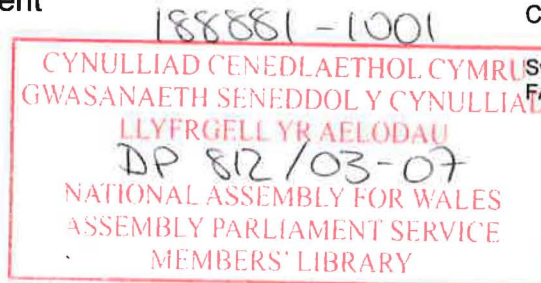 ent
188881-1001
C
CYNULLIAD CENEDLAETHOL CYMRU
GWASANAETH SENEDDOL Y CYNULLIAD
LLYFRGELL YR AELODAU
DP 812/03-07
NATIONAL ASSEMBLY FOR WALES
ASSEMBLY PARLIAMENT SERVICE
MEMBERS' LIBRARY